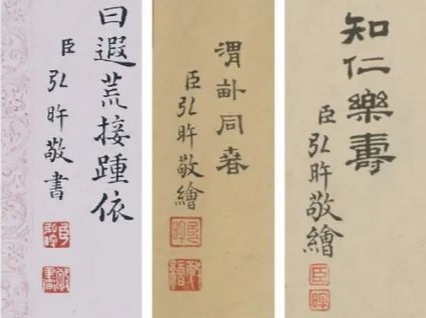 曰遐荒接踵依
臣弘旿敬書
渭畝同春
臣弘旿敬繪
知仁樂壽
臣弘旿敬繪
臣
旿